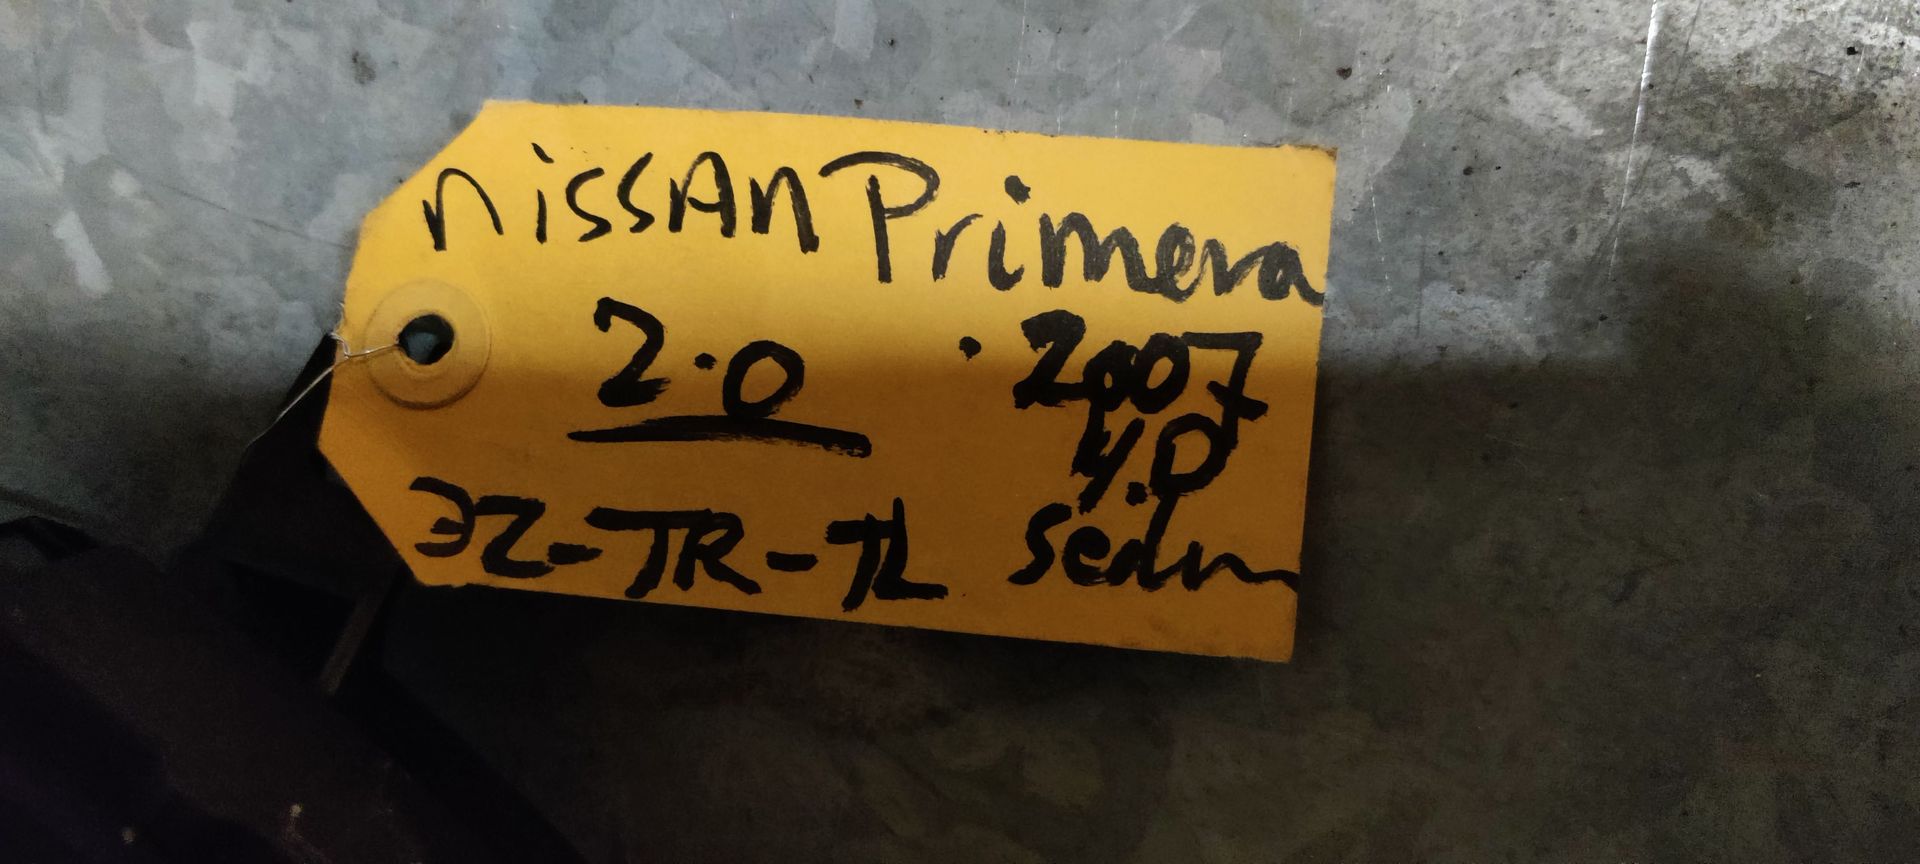 nissAn Primera
2.0 . 2007
y.D
37-TR-TL sedan